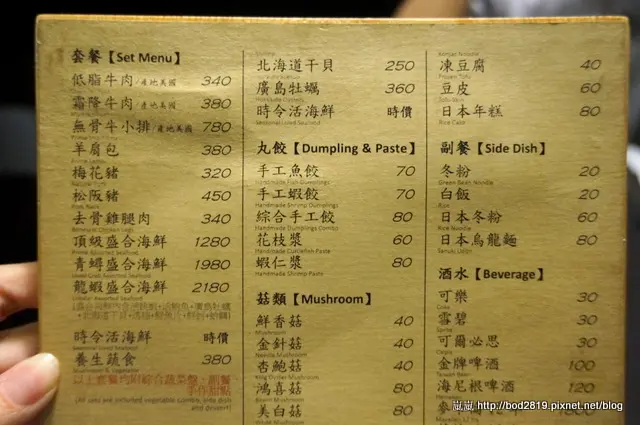 套餐【Set Menu】
低脂牛肉/產地美國 340
霜降牛肉/產地美國 380
無骨牛小排/產地美國 780
羊肩包 380
梅花豬 320
松阪豬 450
去骨雞腿肉 340
頂級盛合海鮮 1280
青蟳盛合海鮮 1980
龍蝦盛合海鮮 2180
時令活海鮮 時價
養生蔬食 380
以上套餐均附綜合蔬菜盤、副餐
手作甜點
北海道干貝 250
廣島牡蠣 360
時令活海鮮 時價
丸餃【Dumpling & Paste】
手工魚餃 70
Handmade Fish Dumplings
手工蝦餃 70
Handmade Shrimp Dumplings
綜合手工餃 80
Handmade Dumplings Combo
花枝漿 60
Handmade Cuttlefish Paste
蝦仁漿 80
Handmade Shrimp Paste
菇類【Mushroom】
鮮香菇 40
Mushroom
金針菇 40
Needle Mushroom
杏鮑菇 40
King Oyster Mushroom
鴻喜菇 80
美白菇 80
凍豆腐 40
Frozen Tofu
豆皮 60
Tofu Skin
日本年糕 80
Rice Cake
副餐【Side Dish】
冬粉 20
Green Bean Noodle
白飯 20
Rice
日本冬粉 60
Rice Noodle
日本烏龍麵 80
Sanuki Udon
酒水【Beverage】
可樂 30
Coke
雪碧 30
Sprite
可爾必思 30
Calpis
金牌啤酒 100
Taiwan Beer
海尼根啤酒 120
Heineken
嵐嵐 http://bod2819.pixnet.net/blog